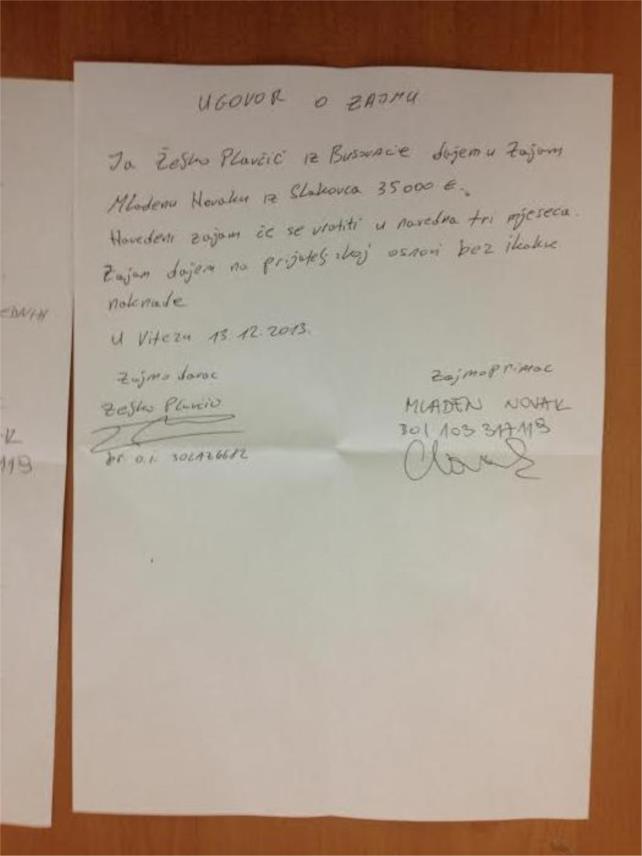 UGOVOR O ZAJMU
Ja Željko Plavčić iz Busovače dajem u Zajam
Mladenu Novaku iz Slakovca 35000 €.
Navedeni zajam će se vratiti u naredna tri mjeseca.
Zajam dajem na prijateljskoj osnovi bez ikakve
naknade
U Vitezu 13.12.2013.
Zajmodavac
Zajmoprimac
Željko Plavčić
MLADEN NOVAK
301 103 317119
br o.i. 302126612
EDNIH
119